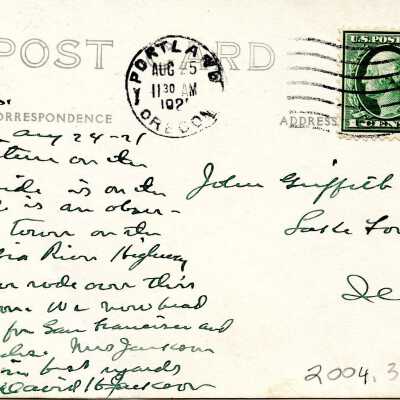 POST CARD
PORTLAND
AUG 25
11 30 AM
1921
OREGON
U.S. POST
1 CENT
CORRESPONDENCE
ADDRESS
Aug 24-21
on the
side is on the
is an obser-
town on the
River Highway
rode over this
We now head
for San Francisco and
Mrs Jackson
best regards
David H Jackson
John Griffith
Lake For
Ill
2004.3